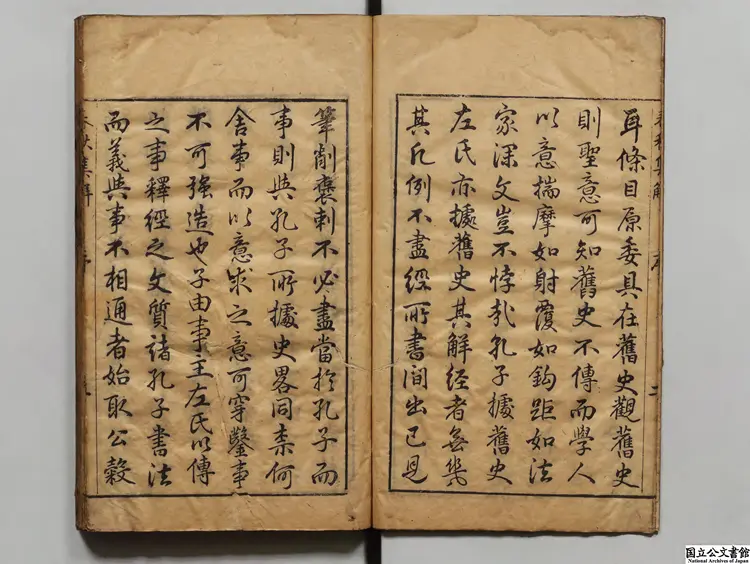 耳條目原委具在舊史觀舊史
則聖意可知舊史不傳而學人
以意揣摩如射覆如鈎距如法
家深文豈不悖乎孔子據舊史
左氏亦據舊史其解經者無幾
其凡例不盡經所書間出已見
筆削褒刺不必盡當於孔子而
事則與孔子所據史畧同柰何
舍事而以意求之意可穿鑿事
不可強造也子由事主左氏以傳
之事釋經之文質諸孔子書法
而義與事不相通者始取公穀
春秋集解
序
二
国立公文書館
National Archives of Japan